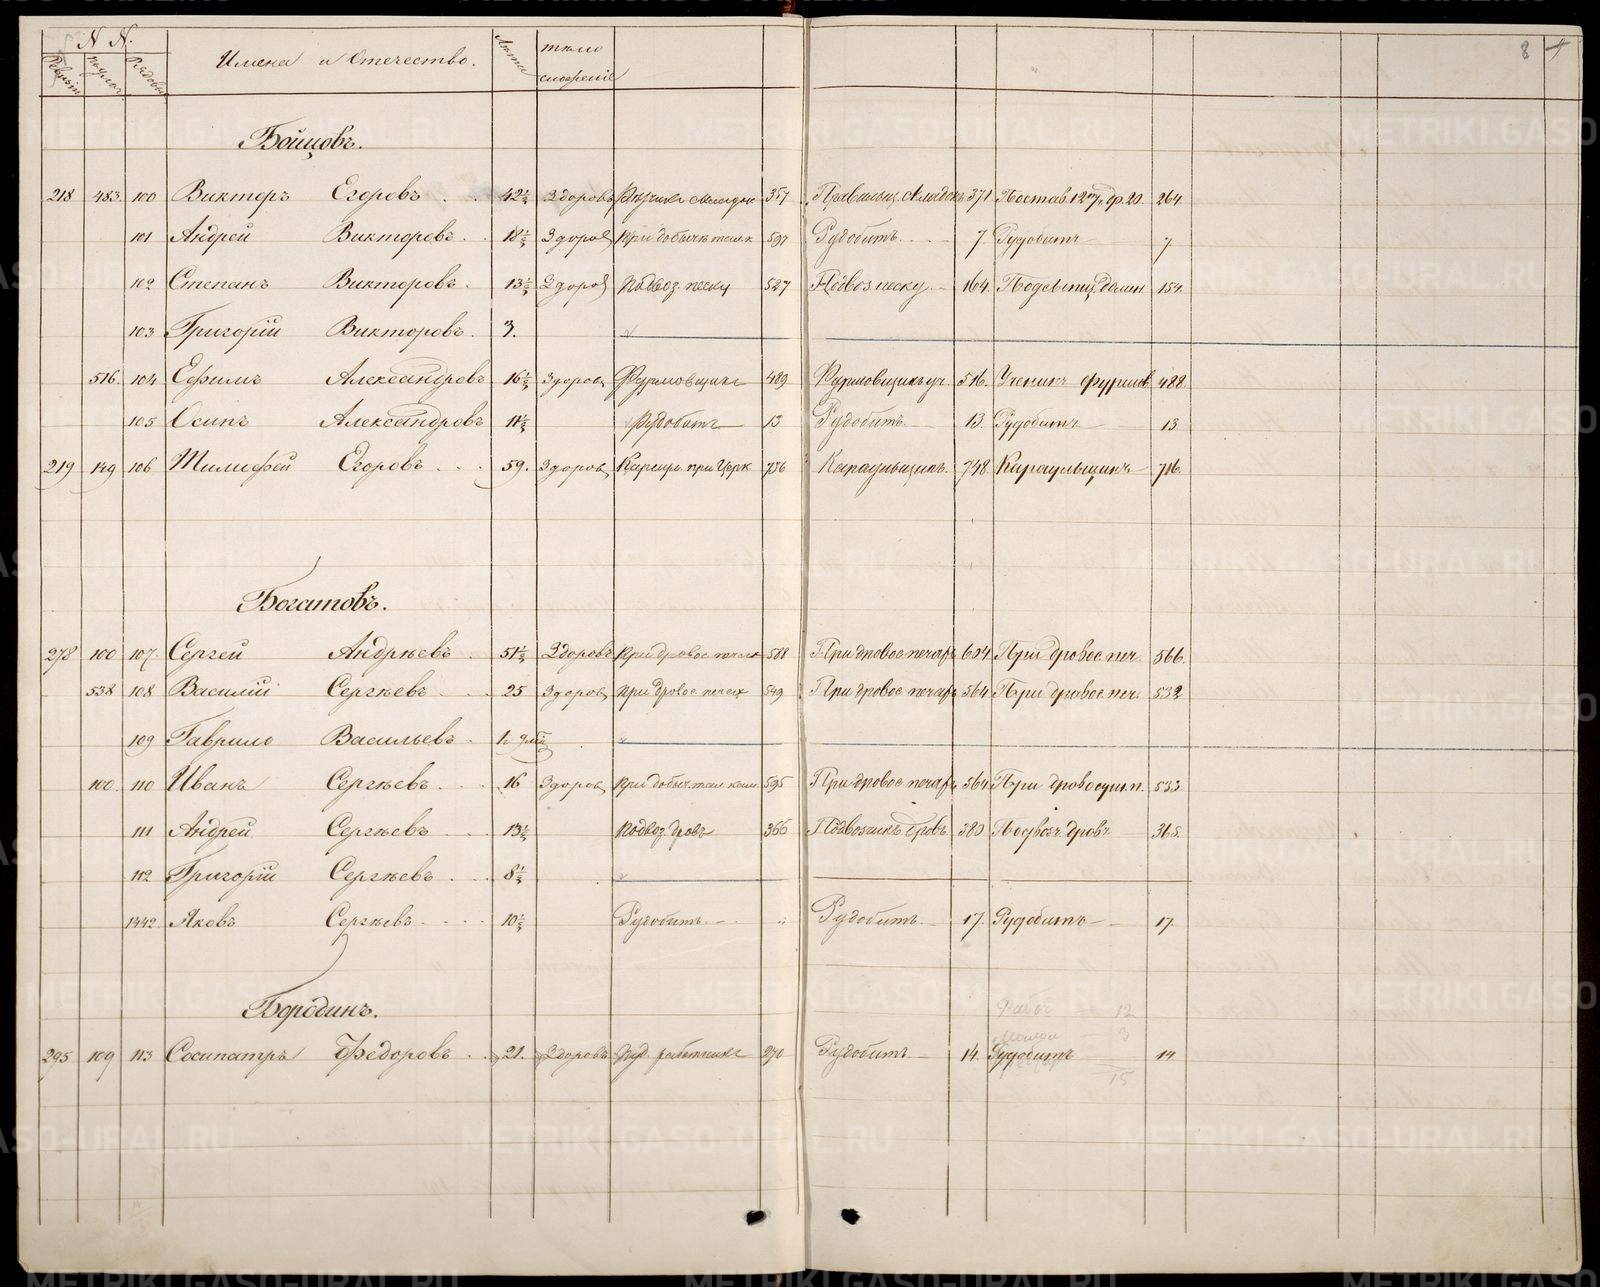 N N.
Имена и Отечество.
Лета
тѣло
сложеніе
8
Бойцовъ.
218 483 100 Викторъ Егоровъ 42½ Здоровъ 357 371 264
101 Андрей Викторовъ 18½ Здоров при добычѣ 597 Рудобитъ 7 Рудобитъ 7
102 Степанъ Викторовъ 13½ Здоров Подвоз песку 527 Подвоз песку 164 154
103 Григорій Викторовъ 3.
516 104 Ефимъ Александровъ 16½ Здоров Фурмовщикъ 489 Фурмовщикъ уч 516 Ученикъ фурмов 488
105 Осипъ Александровъ 11½ Рудобитъ 13 Рудобитъ 13 Рудобитъ 13
219 149 106 Тимофей Егоровъ 59. Здоров при Церк 736 Караульщикъ 748 Караульщикъ 716
Богатовъ.
278 100 107 Сергей Андрѣевъ 51½ Здоровъ при дровос печах 588 При дровос печахъ 604 При дровос печ. 566
538 108 Василій Сергѣевъ 25 Здоров при дровос печах 549 При дровос печахъ 564 При дровос печ. 532
109 Гаврило Васильевъ
100 110 Иванъ Сергѣевъ 16 Здоров при добыч 595 При дровос печахъ 564 При дровосуш. п. 533
111 Андрей Сергѣевъ 13½ Подвоз дровъ 366 Подвозчикъ дровъ 380 Подвозч дровъ 365
112 Григорій Сергѣевъ 8½
1442 Яковъ Сергѣевъ 10½ Рудобитъ Рудобитъ 17. Рудобитъ 17.
Бородинъ.
12
3
295 109 113 Сосипатръ Федоровъ 21. Здоровъ работникъ 270 Рудобитъ 14. Рудобитъ 14
15
METRIKI.GASO-URAL.RU